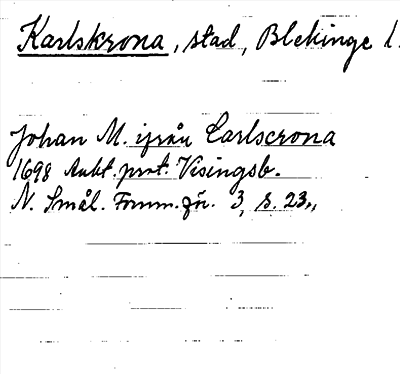 Karlskrona, stad, Blekinge l.
Johan M. ifrån Carlscrona
1698 Aukt. prot. Visingsb.
N. Smål. Fornm. för. 3, s. 23.